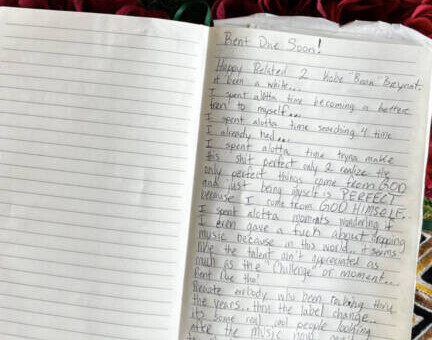 Rent Due Soon!
Happy Belated 2 Kobe "Bean" Bryant..
it been a while...
I spent alotta time becoming a better
to myself...
I spent alotta time searching 4 time
I already had...
I spent alotta time tryna make
this shit perfect only 2 realize the
only perfect things come from GOD
and just being myself is PERFECT
because I come from GOD HIMSELF..
I spent alotta moments wondering if
I even gave a fuck about dropping
music because in this world.. it seems
like the talent ain't appreciated as
much as the "Challenge" or moment...
but
been thru
the years.. thru the label change..
its some real people looking
the music